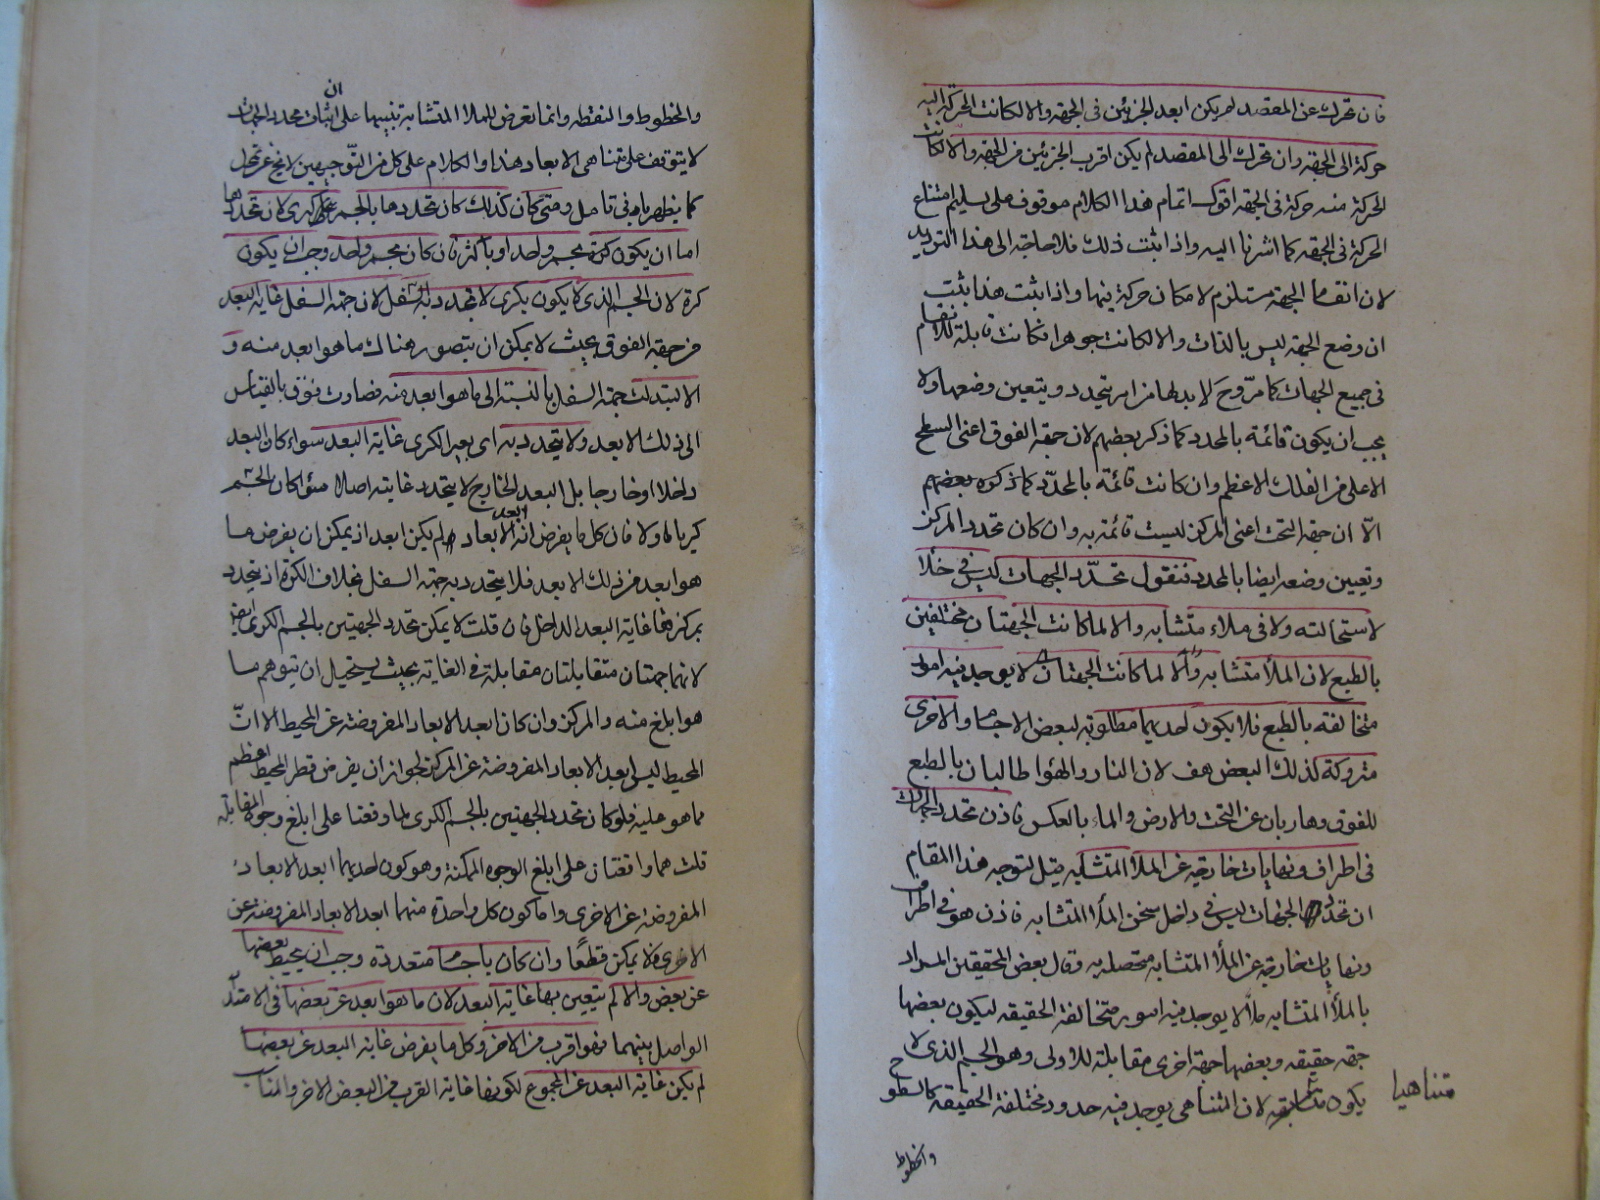 فان تحرك عن المقصد لم يكن ابعد الجزئين في الجهة والا لكانت الحركة اليه
حركة الى الجهة وان تحرك الى المقصد لم يكن اقرب الجزئين من الجهة والا لكانت
الحركة منه حركة في الجهة اقول اتمام هذا الكلام موقوف على تسليم امتناع
الحركة في الجهة كما اشرنا اليه واذا ثبت ذلك فلا حاجة الى هذا الترديد
لان انقسام الجهة مستلزم لامكان حركة فيها واذا ثبت هذا ثبت
ان وضع الجهة ليس بالذات والا لكانت جوهرا فكانت قابلة للانقسام
في جميع الجهات كما مرّ وح لا بد لها من امر يتحدد ويتعين وضعها ولا
يجب ان يكون قائمة بالمحدد كما ذكر بعضهم لان جهة الفوق اعنى السطح
الاعلى من الفلك الاعظم وان كانت قائمة بالمحدّد كما ذكره بعضهم
الّا ان جهة التحت اعنى المركز ليست قائمة به وان كان تحدد المركز
وتعيين وضعه ايضا بالمحدد فنقول تحدّد الجهات ليس في خلأ
لاستحالته ولا في ملاء متشابه والا لما كانت الجهتان مختلفين
بالطبع لان الملأ متشابه والا لما كانت الجهتان لا يوجد فيه امور
متخالفة بالطبع فلا يكون احديهما مطلوبة لبعض الاجسام والاخرى
متروكة لذلك البعض هف لان النار والهواء طالبان بالطبع
للفوق وهاربان عن التحت والارض والماء بالعكس فاذن تحدد الجهات
في اطراف ونهايات خارجة عن الملأ المتشابه قيل لتوجيه هذا المقام
ان تحدد الجهات ليس في داخل ثخن الملأ المتشابه فاذن هو في اطراف
ونهايات خارجة عن الملأ المتشابه متحصلة به وقال بعض المحققين المراد
بالملأ المتشابه ملأ لا يوجد فيه امور متخالفة الحقيقة ليكون بعضها
جهة حقيقة وبعضها جهة اخرى مقابلة للاولى وهو الجسم الذي لا
يكون متناهيا لان المتناهي يوجد فيه حدود مختلفة الحقيقة كالسطوح
متناهيا
والخطوط
والخطوط والنقطه وانما تعرض للملا المتشابه تنبيها على ان اثبات محدد الجهات
لا يتوقف على تناهي الابعاد هذا والكلام على كل من التّوجيهين لا يخ عن تمحل
كما يظهر بادنى تامل ومتى كان كذلك كان تحددها بالجسم كرى لان تحددها
اما ان يكون بجسم واحد او باكثر فان كان بجسم واحد وجب ان يكون
كرة لان الجسم الذي لا يكون بكرى لا يتحدد به السفل لان جهة السفل غاية البعد
من جهة الفوق بحيث لا يمكن ان يتصور هناك ما هو ابعد منه و
الا لتبدلت جهة السفل بالنسبة الى ما هو ابعد منه فصارت فوق بالقياس
الى ذلك الابعد ولا يتحدد به اى بغير الكرى غاية البعد سواء كان البعد
داخلا او خارجا بل البعد الخارج لا يتحدد غايته اصلا سواء كان الجسم
كريا او لا فان كل ما يفرض انه ابعد الابعاد لم يكن ابعد اذ يمكن ان يفرض ما
هو ابعد من ذلك الابعد فلا يتحدد به جهة السفل بخلاف الكرة اذ يتحدد
بمركزها غاية البعد الداخل فان قلت لا يمكن تحدد الجهتين بالجسم الكرى ايض
لانهما جهتان متقابلتان متقابلة في الغاية بحيث يستحيل ان يتوهم ما
هو ابلغ منه والمركز وان كان ابعد الابعاد المفروضة عن المحيط الا انّ
المحيط ليس ابعد الابعاد المفروضة عن المركز لجواز ان يفرض قطر المحيط اعظم
مما هو عليه فلو كان تحدد الجهتين بالجسم الكرى لما وقعتا على ابلغ وجوه المقابلة
قلت هما واقعتان على ابلغ الوجوه الممكنة وهو كون احديهما ابعد الابعاد
المفروضة عن الاخرى واما كون كل واحدة منهما ابعد الابعاد المفروضة عن
الاخرى فلا يمكن قطعًا وان كان باجسام متعددة وجب ان يحيط بعضها
عن بعض والا لم يتعين بها غاية البعد لان ما هو ابعد عن بعضها في الامتداد
الواصل بينهما فهو اقرب من الاخر وكل ما يفرض غاية البعد عن بعضها
لم يكن غاية البعد عن المجموع لكونها غاية القرب من البعض الاخر والمناسب